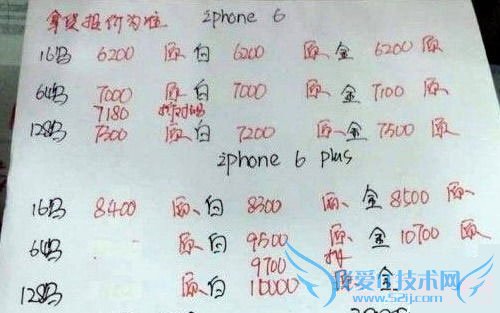 拿货报价为准 iphone 6
16码 6200 原 白 6200 原 金 6200 原
64码 7000 原 白 7000 原 金 7100 原
7180
128码 7300 原 白 7200 原 金 7500 原
iphone 6 plus
16码 8400 原 白 8300 原 金 8500 原
64码 原 白 9500 原 金 10700 原
9700
128码 原 白 10000 原 金
我爱IT技术网
www.52ij.com